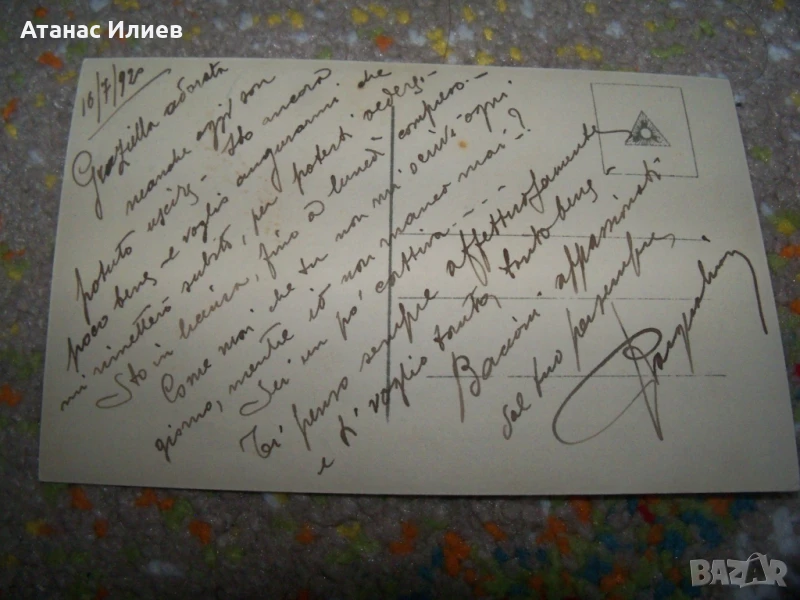 Атанас Илиев
16/7/920
Graziella adorata
neanche oggi son
potuto uscire - Sto ancora
poco bene e voglio augurarmi che
mi rimetterò subito, per poterti vedere -
Sto in licenza, fino a lunedì compreso. -
Come mai che tu non mi scrivi ogni
giorno, mentre io non manco mai - ?
Sei un po' cattiva - - - -
Ti penso sempre affettuosamente
e ti voglio tanto, tanto bene -
Bacioni appassionati
dal tuo per sempre,
Pasqualino
BAZAR